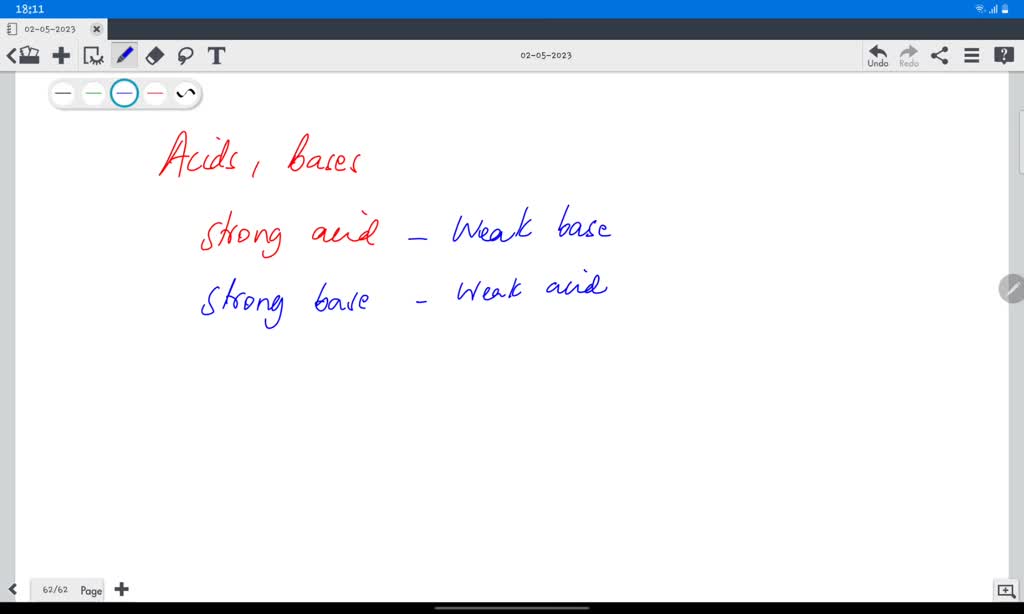 18:11
02-05-2023
02-05-2023
Undo
Redo
Acids, bases
strong acid – Weak base
strong base – Weak acid
62/62 Page